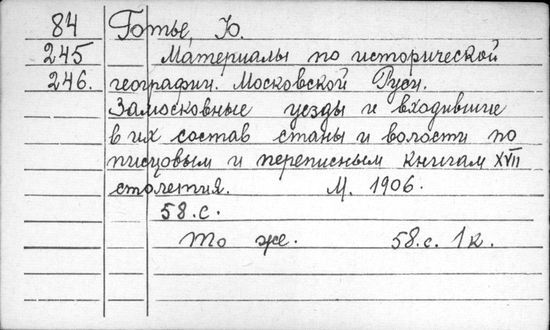 84 Готье, Ю.
245 Материалы по исторической
246. географии. Московской Руси.
Замосковные уезды и входившие
в их состав станы и волости по
писцовым и переписным книгам XVII
столетия. М. 1906.
58.с.
То же. 58.с. 1к.